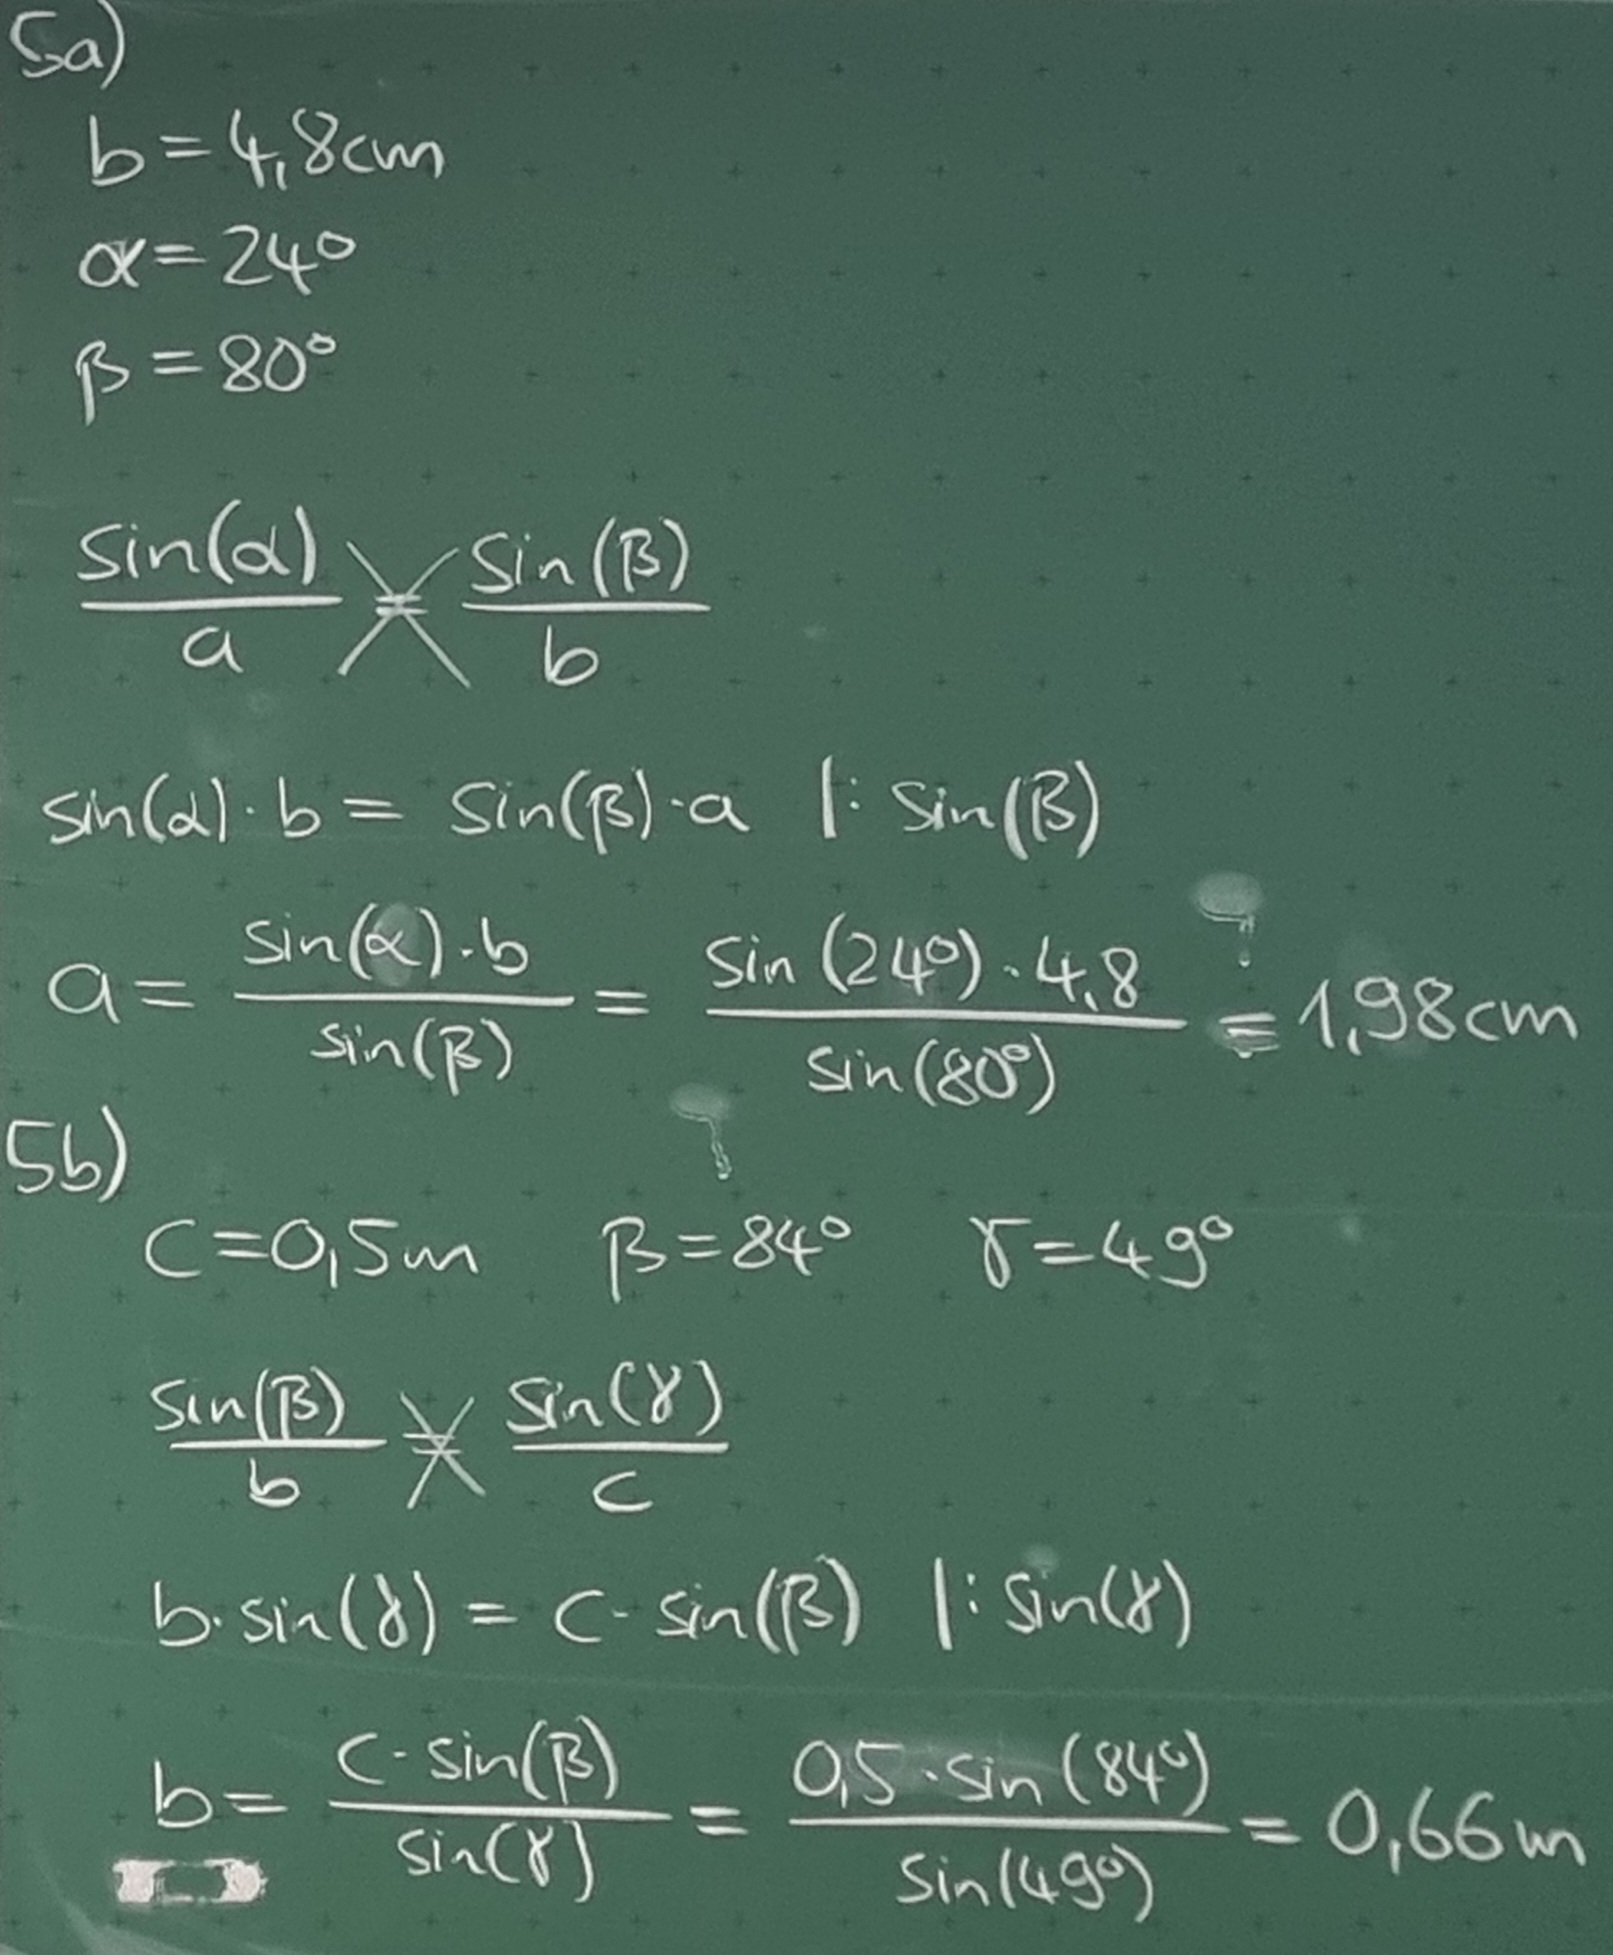 5a)
b=4,8cm
α=24°
β=80°
sin(α)/a = sin(β)/b
sin(α)·b = sin(β)·a |: sin(β)
a= sin(α)·b/sin(β) = sin(24°)·4,8/sin(80°) = 1,98cm
5b)
c=0,5m β=84° γ=49°
sin(β)/b = sin(γ)/c
b·sin(γ) = c·sin(β) |: sin(γ)
b= c·sin(β)/sin(γ) = 0,5·sin(84°)/sin(49°) = 0,66m